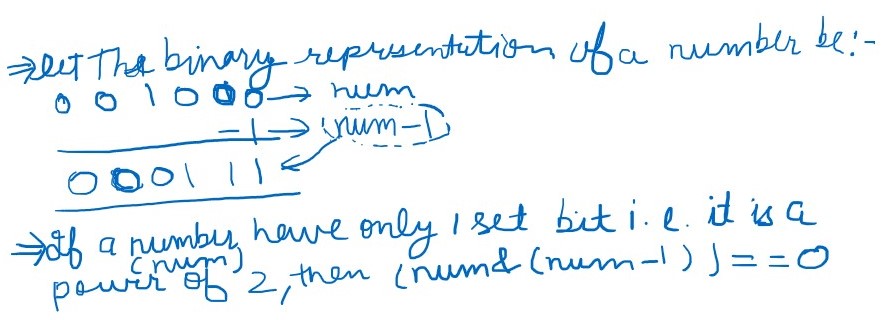 ⇒ let The binary representation of a number be:-
0 0 1 0 0 0 → num
-1 → num-1
0 0 0 1 1 1
⇒ If a number have only 1 set bit i.e. it is a
(num)
power of 2, then (num & (num-1)) == 0